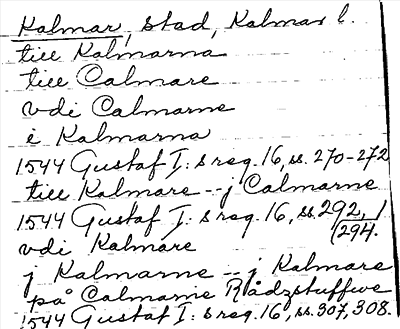 Kalmar, stad, Kalmar l.
till Kalmarna
till Calmare
vdi Calmarne
i Kalmarna
1544 Gustaf I:s reg. 16, ss. 270-272
till Kalmare -- j Calmarne
1544 Gustaf I:s reg. 16, ss. 292, 294.
vdi Kalmare
j Kalmarne -- j Kalmare
på Calmarne Rådzstuffwe
1544 Gustaf I:s reg. 16, ss. 307, 308.